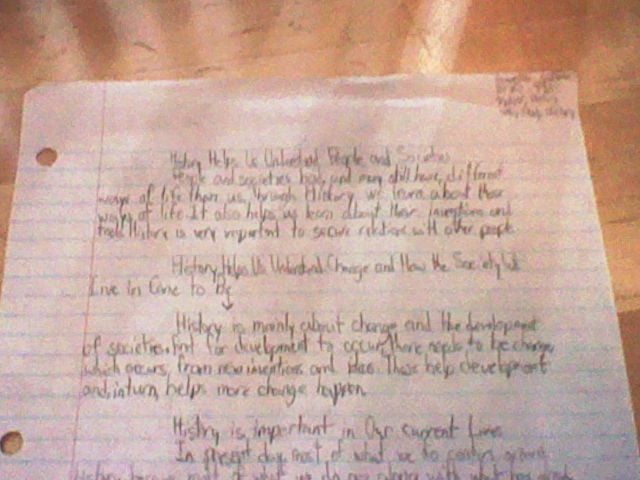 History Helps Us Understand People and Societies
People and societies had, and may still have, different
ways of life than us, through History we learn about those
ways of life. It also helps us learn about their inventions and
tools. History is very important to secure relations with other people
History Helps Us Understand Change and How the Society We
Live in Came to Be
History is mainly about change and the development
of societies. For development to occur, there needs to be change,
which occurs, from new inventions and ideas. These help development
and, in turn, helps more change happen.
History is important in Our current lives
In present day, most of what we do
History because most of what we do